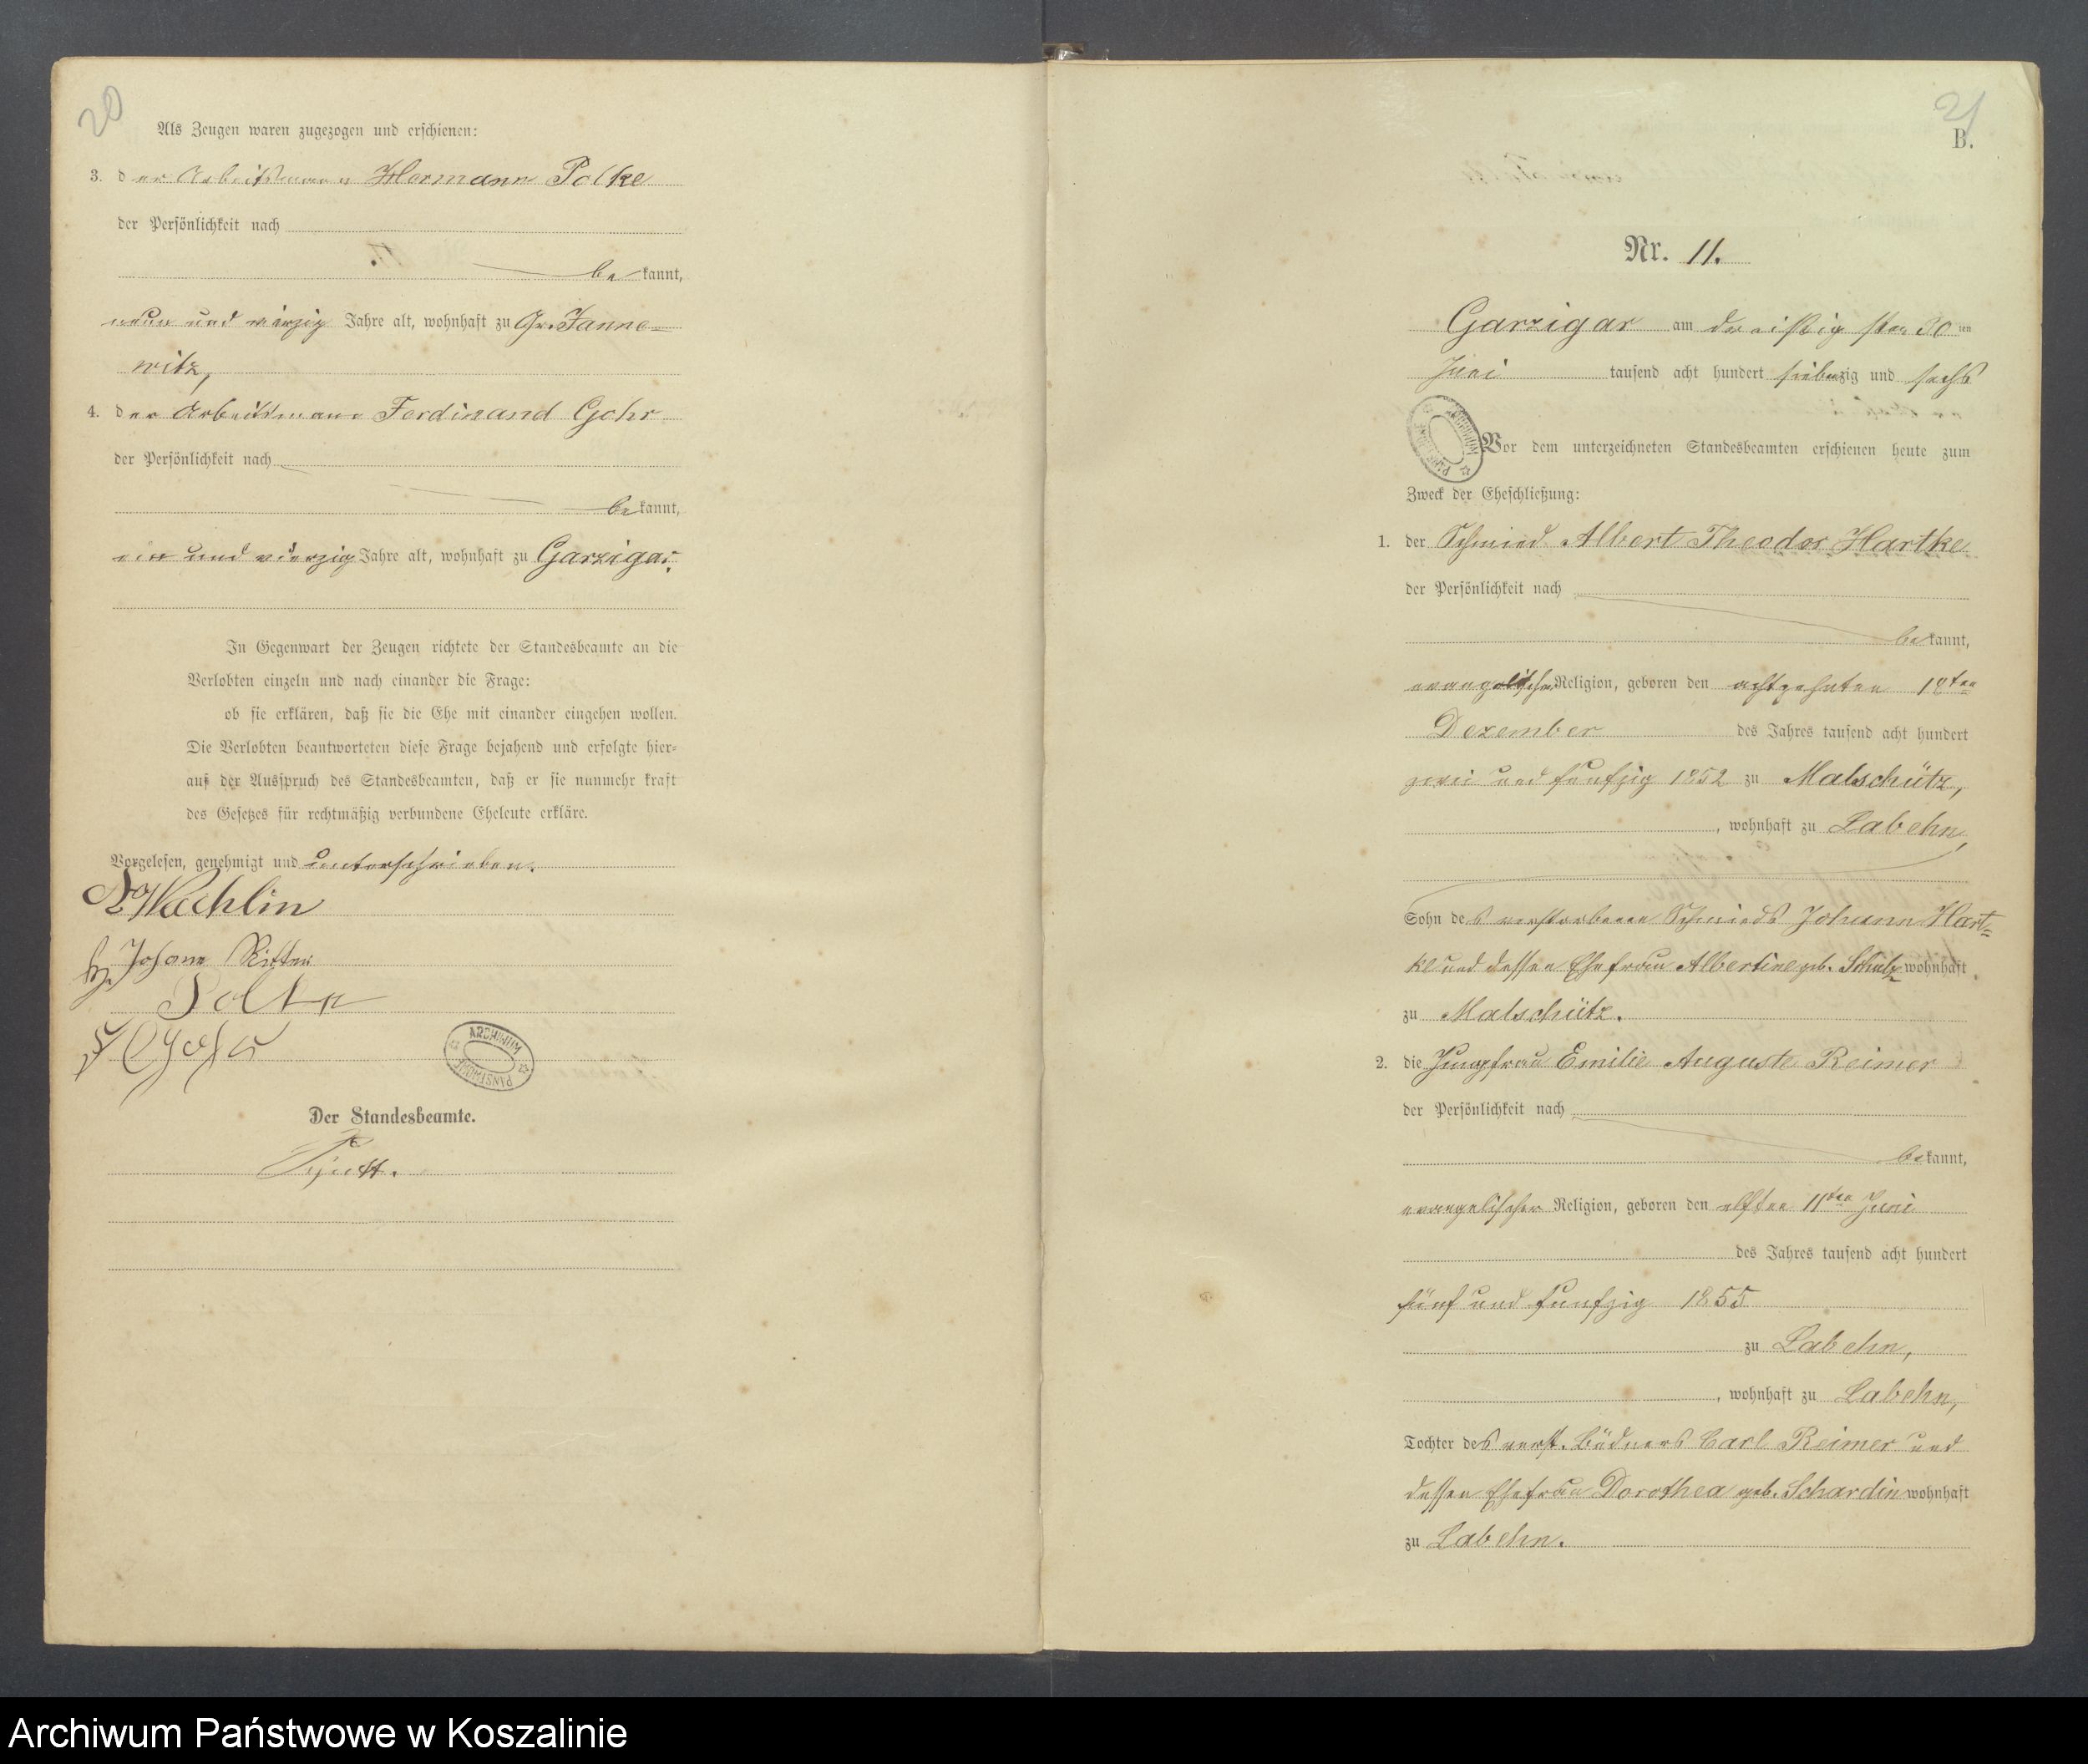 20
Als Zeugen waren zugezogen und erschienen:
3. der Arbeitsmann Hermann Polke
der Persönlichkeit nach
bekannt,
neun und vierzig Jahre alt, wohnhaft zu Gr. Janne-
witz,
4. der Arbeitsmann Ferdinand Gohr
der Persönlichkeit nach
bekannt,
ein und vierzig Jahre alt, wohnhaft zu Garzigar.
In Gegenwart der Zeugen richtete der Standesbeamte an die
Verlobten einzeln und nach einander die Frage:
ob sie erklären, daß sie die Ehe mit einander eingehen wollen.
Die Verlobten beantworteten diese Frage bejahend und erfolgte hier-
auf der Ausspruch des Standesbeamten, daß er sie nunmehr kraft
des Gesetzes für rechtmäßig verbundene Eheleute erkläre.
Vorgelesen, genehmigt und unterschrieben.
Wachlin
Johann Ritter
Polke
Gohr
ARCHIWUM PAŃSTWOWE
Der Standesbeamte.
21
B.
Nr. 11.
Garzigar am dreißigsten 30ten
Juni tausend acht hundert siebenzig und sechs
ARCHIWUM PAŃSTWOWE
Vor dem unterzeichneten Standesbeamten erschienen heute zum
Zweck der Eheschließung:
1. der Schmied Albert Theodor Hartke
der Persönlichkeit nach
bekannt,
evangelischer Religion, geboren den achtzehnten 18ten
Dezember des Jahres tausend acht hundert
zwei und funfzig 1852 zu Malschütz,
, wohnhaft zu Labehn,
Sohn des verstorbenen Schmieds Johann Hart-
ke und dessen Ehefrau Albertine geb. Schulz wohnhaft
zu Malschütz.
2. die Jungfrau Emilie Auguste Reimer
der Persönlichkeit nach
bekannt,
evangelischer Religion, geboren den elften 11ten Juni
des Jahres tausend acht hundert
fünf und funfzig 1855
zu Labehn,
, wohnhaft zu Labehn,
Tochter des verst. Büdners Carl Reimer und
dessen Ehefrau Dorothea geb. Schardin wohnhaft
zu Labehn.
Archiwum Państwowe w Koszalinie